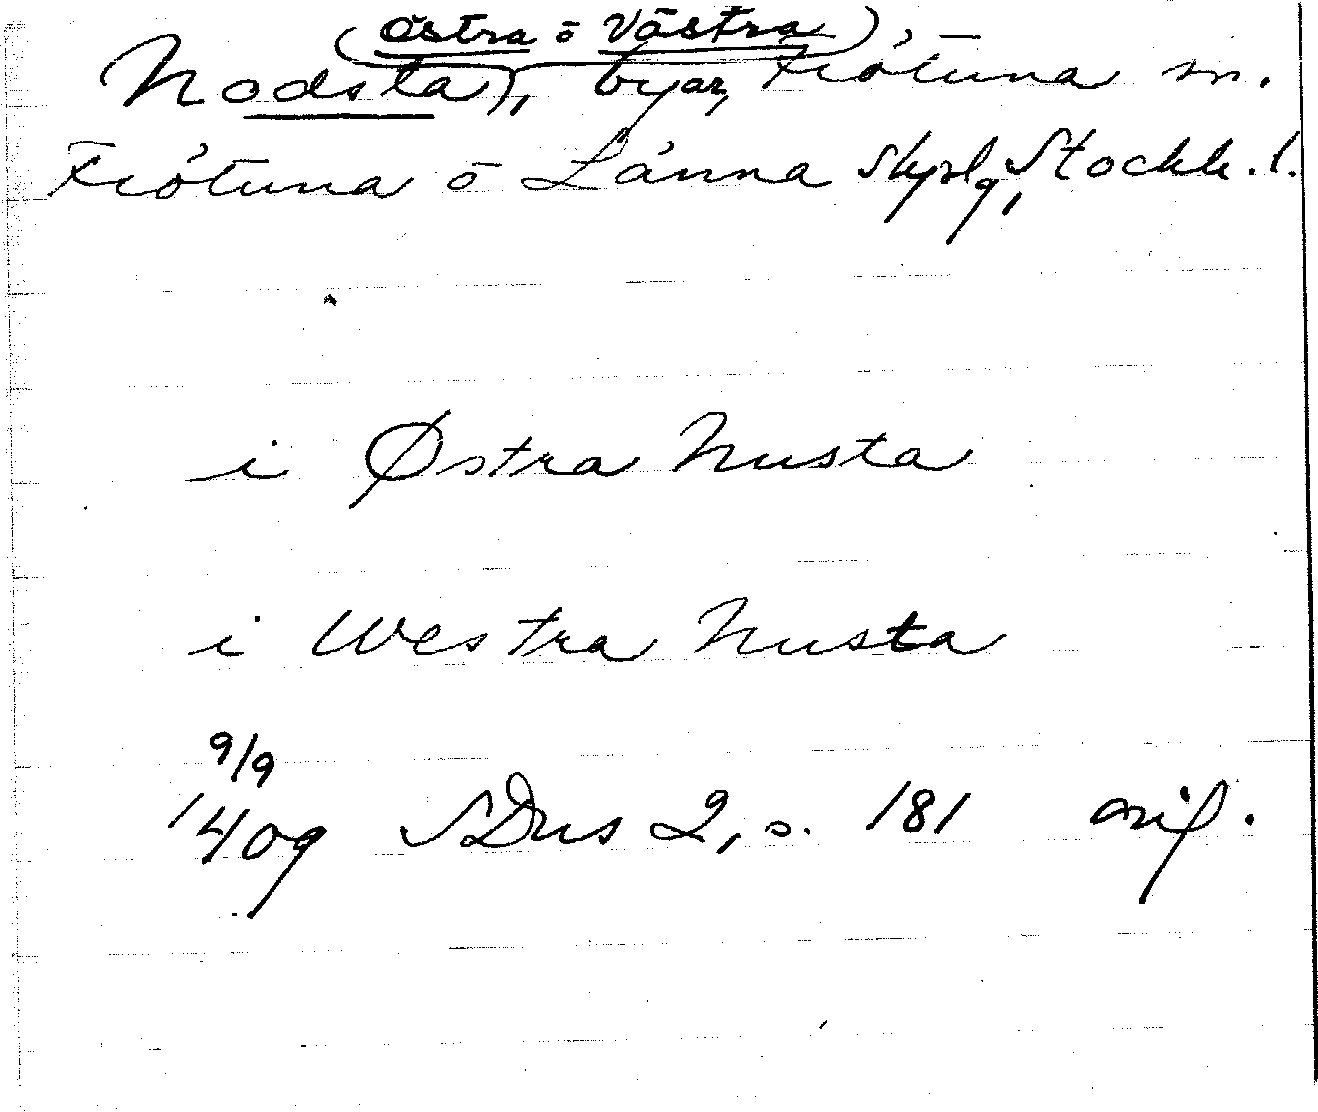 (Östra o Västra)
Nodsta, byar, Frötuna sn.
Frötuna o Länna skpslg, Stockh. l.
i Østra Nusta
i Westra Nusta
9/9
1409 SDns 2, s. 181 avsk.